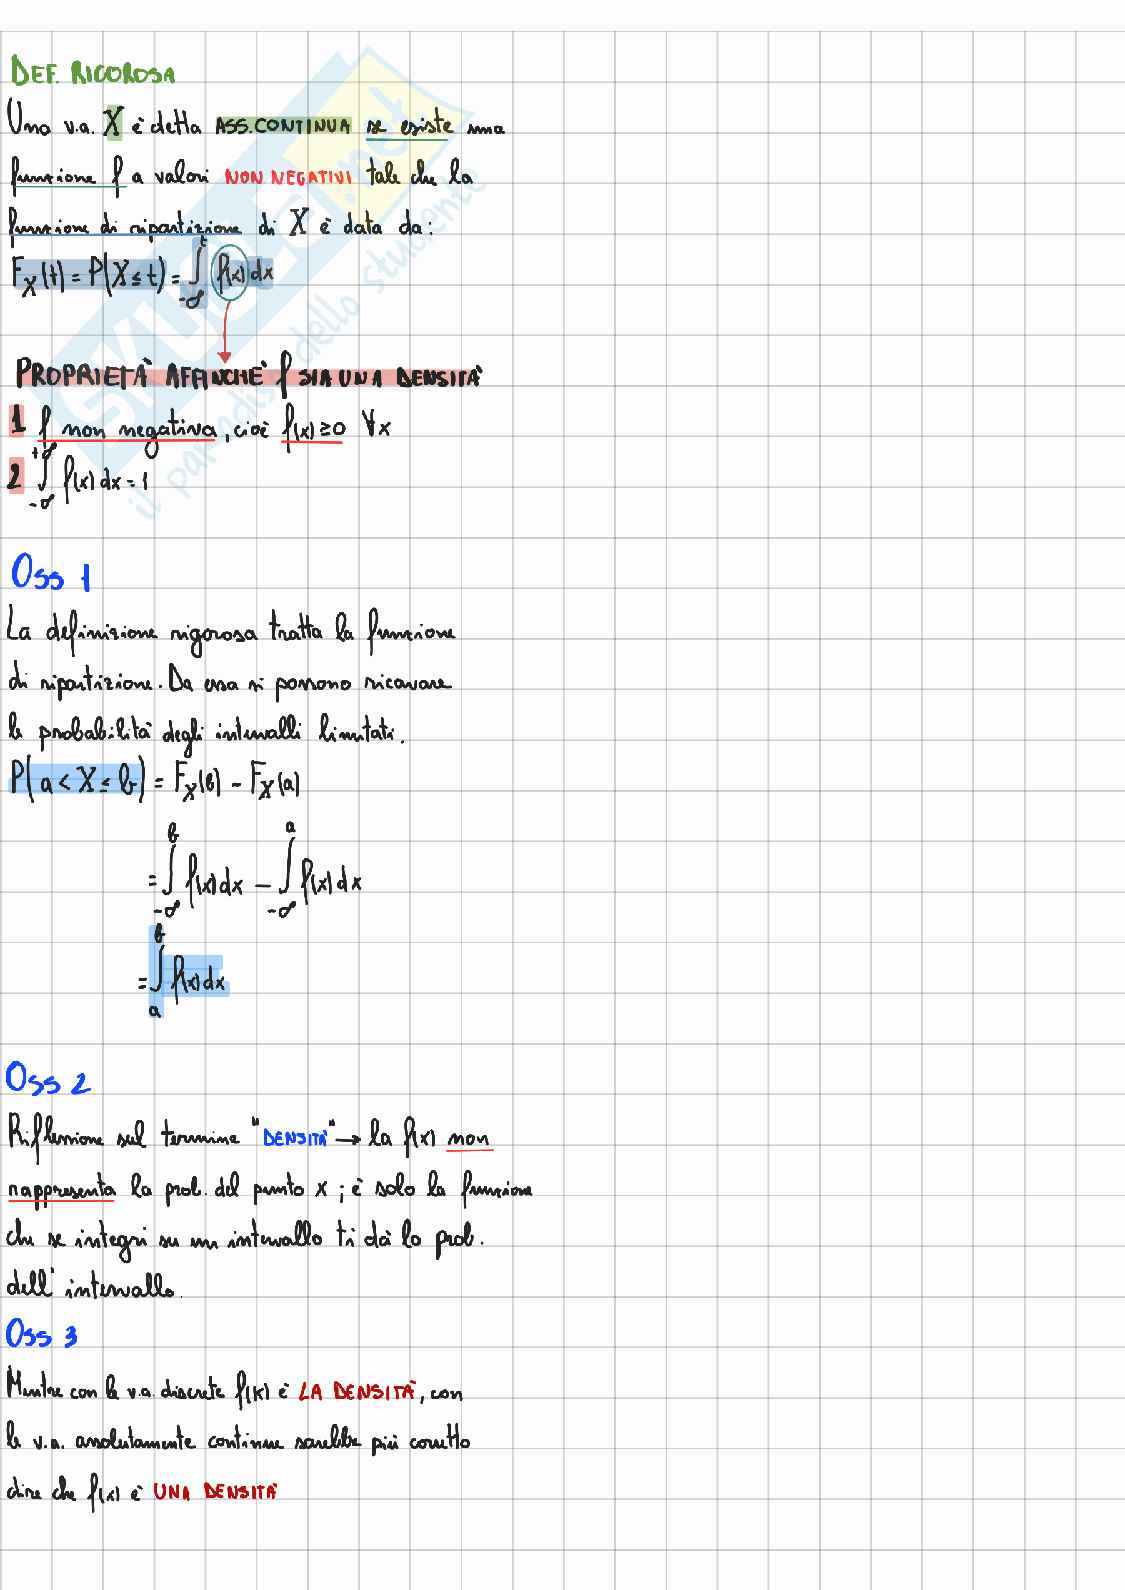 DEF. RIGOROSA
Una v.a. X è detta ASS.CONTINUA se esiste una
funzione f a valori NON NEGATIVI tale che la
funzione di ripartizione di X è data da:
F_X(t) = P(X ≤ t) = ∫_{-∞}^{t} f(x) dx
PROPRIETÀ AFFINCHÈ f SIA UNA DENSITÀ
1 f non negativa, cioè f(x) ≥ 0 ∀x
2 ∫_{-∞}^{+∞} f(x) dx = 1
Oss 1
La definizione rigorosa tratta la funzione
di ripartizione. Da essa si possono ricavare
le probabilità degli intervalli limitati.
P(a < X ≤ b) = F_X(b) - F_X(a)
= ∫_{-∞}^{b} f(x) dx - ∫_{-∞}^{a} f(x) dx
= ∫_{a}^{b} f(x) dx
Oss 2
Riflessione sul termine "DENSITÀ" → la f(x) non
rappresenta la prob. del punto x ; è solo la funzione
che se integri su un intervallo ti dà la prob.
dell'intervallo.
Oss 3
Mentre con le v.a. discrete f(k) è LA DENSITÀ, con
le v.a. assolutamente continue sarebbe più corretto
dire che f(x) è UNA DENSITÀ
SKUOLA.net
il paradiso dello studente